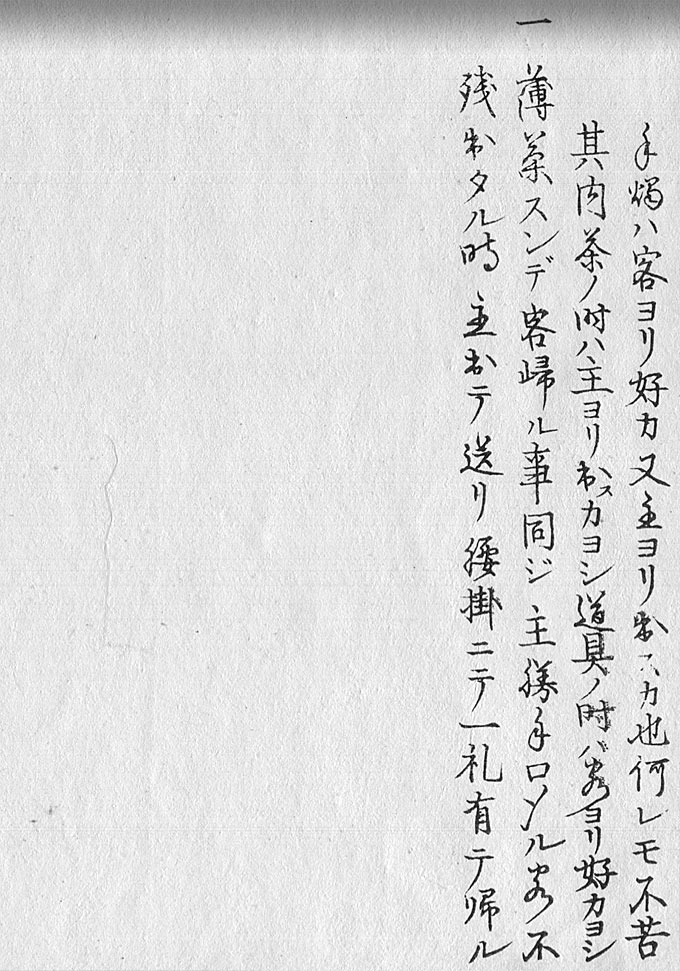 手燭ハ客ヨリ好カ又主ヨリ出スカ也何レモ不苦
其内茶ノ時ハ主ヨリ出スカヨシ道具ノ時ハ客ヨリ好カヨシ
一 薄茶スンデ客歸ル事同ジ主勝手口ノル客不
残出タル時主出テ送リ腰掛ニテ一礼有テ帰ル